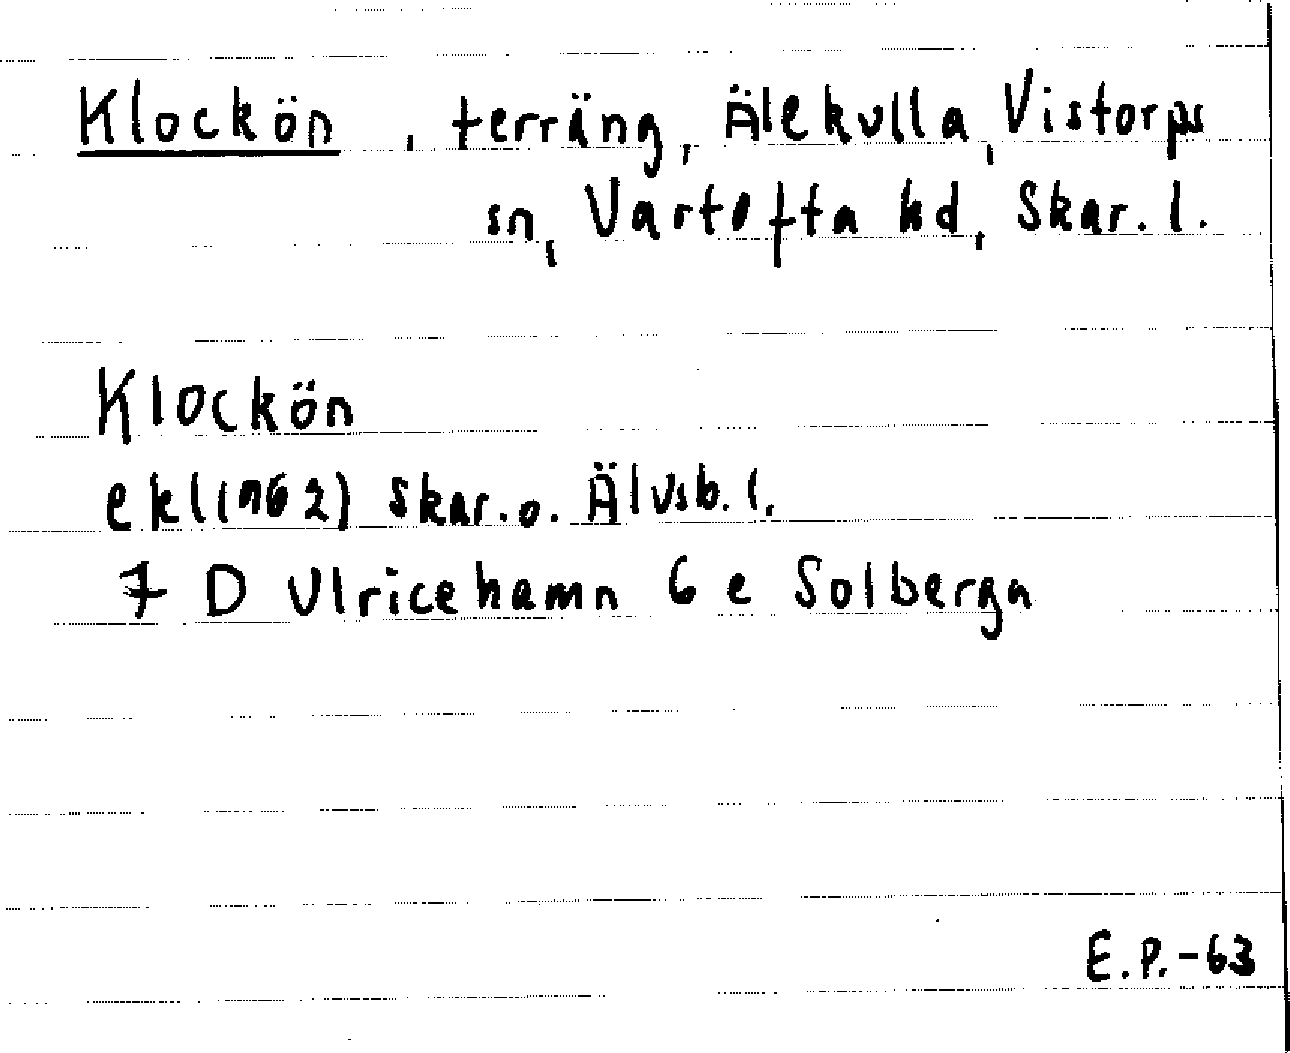 Klockön, terräng, Älekulla, Vistorps
sn, Vartofta hd, Skar. l.
Klockön
ekl(1962) Skar. o. Älvsb. l.
7 D Ulricehamn 6 e Solberga
E.P.-63